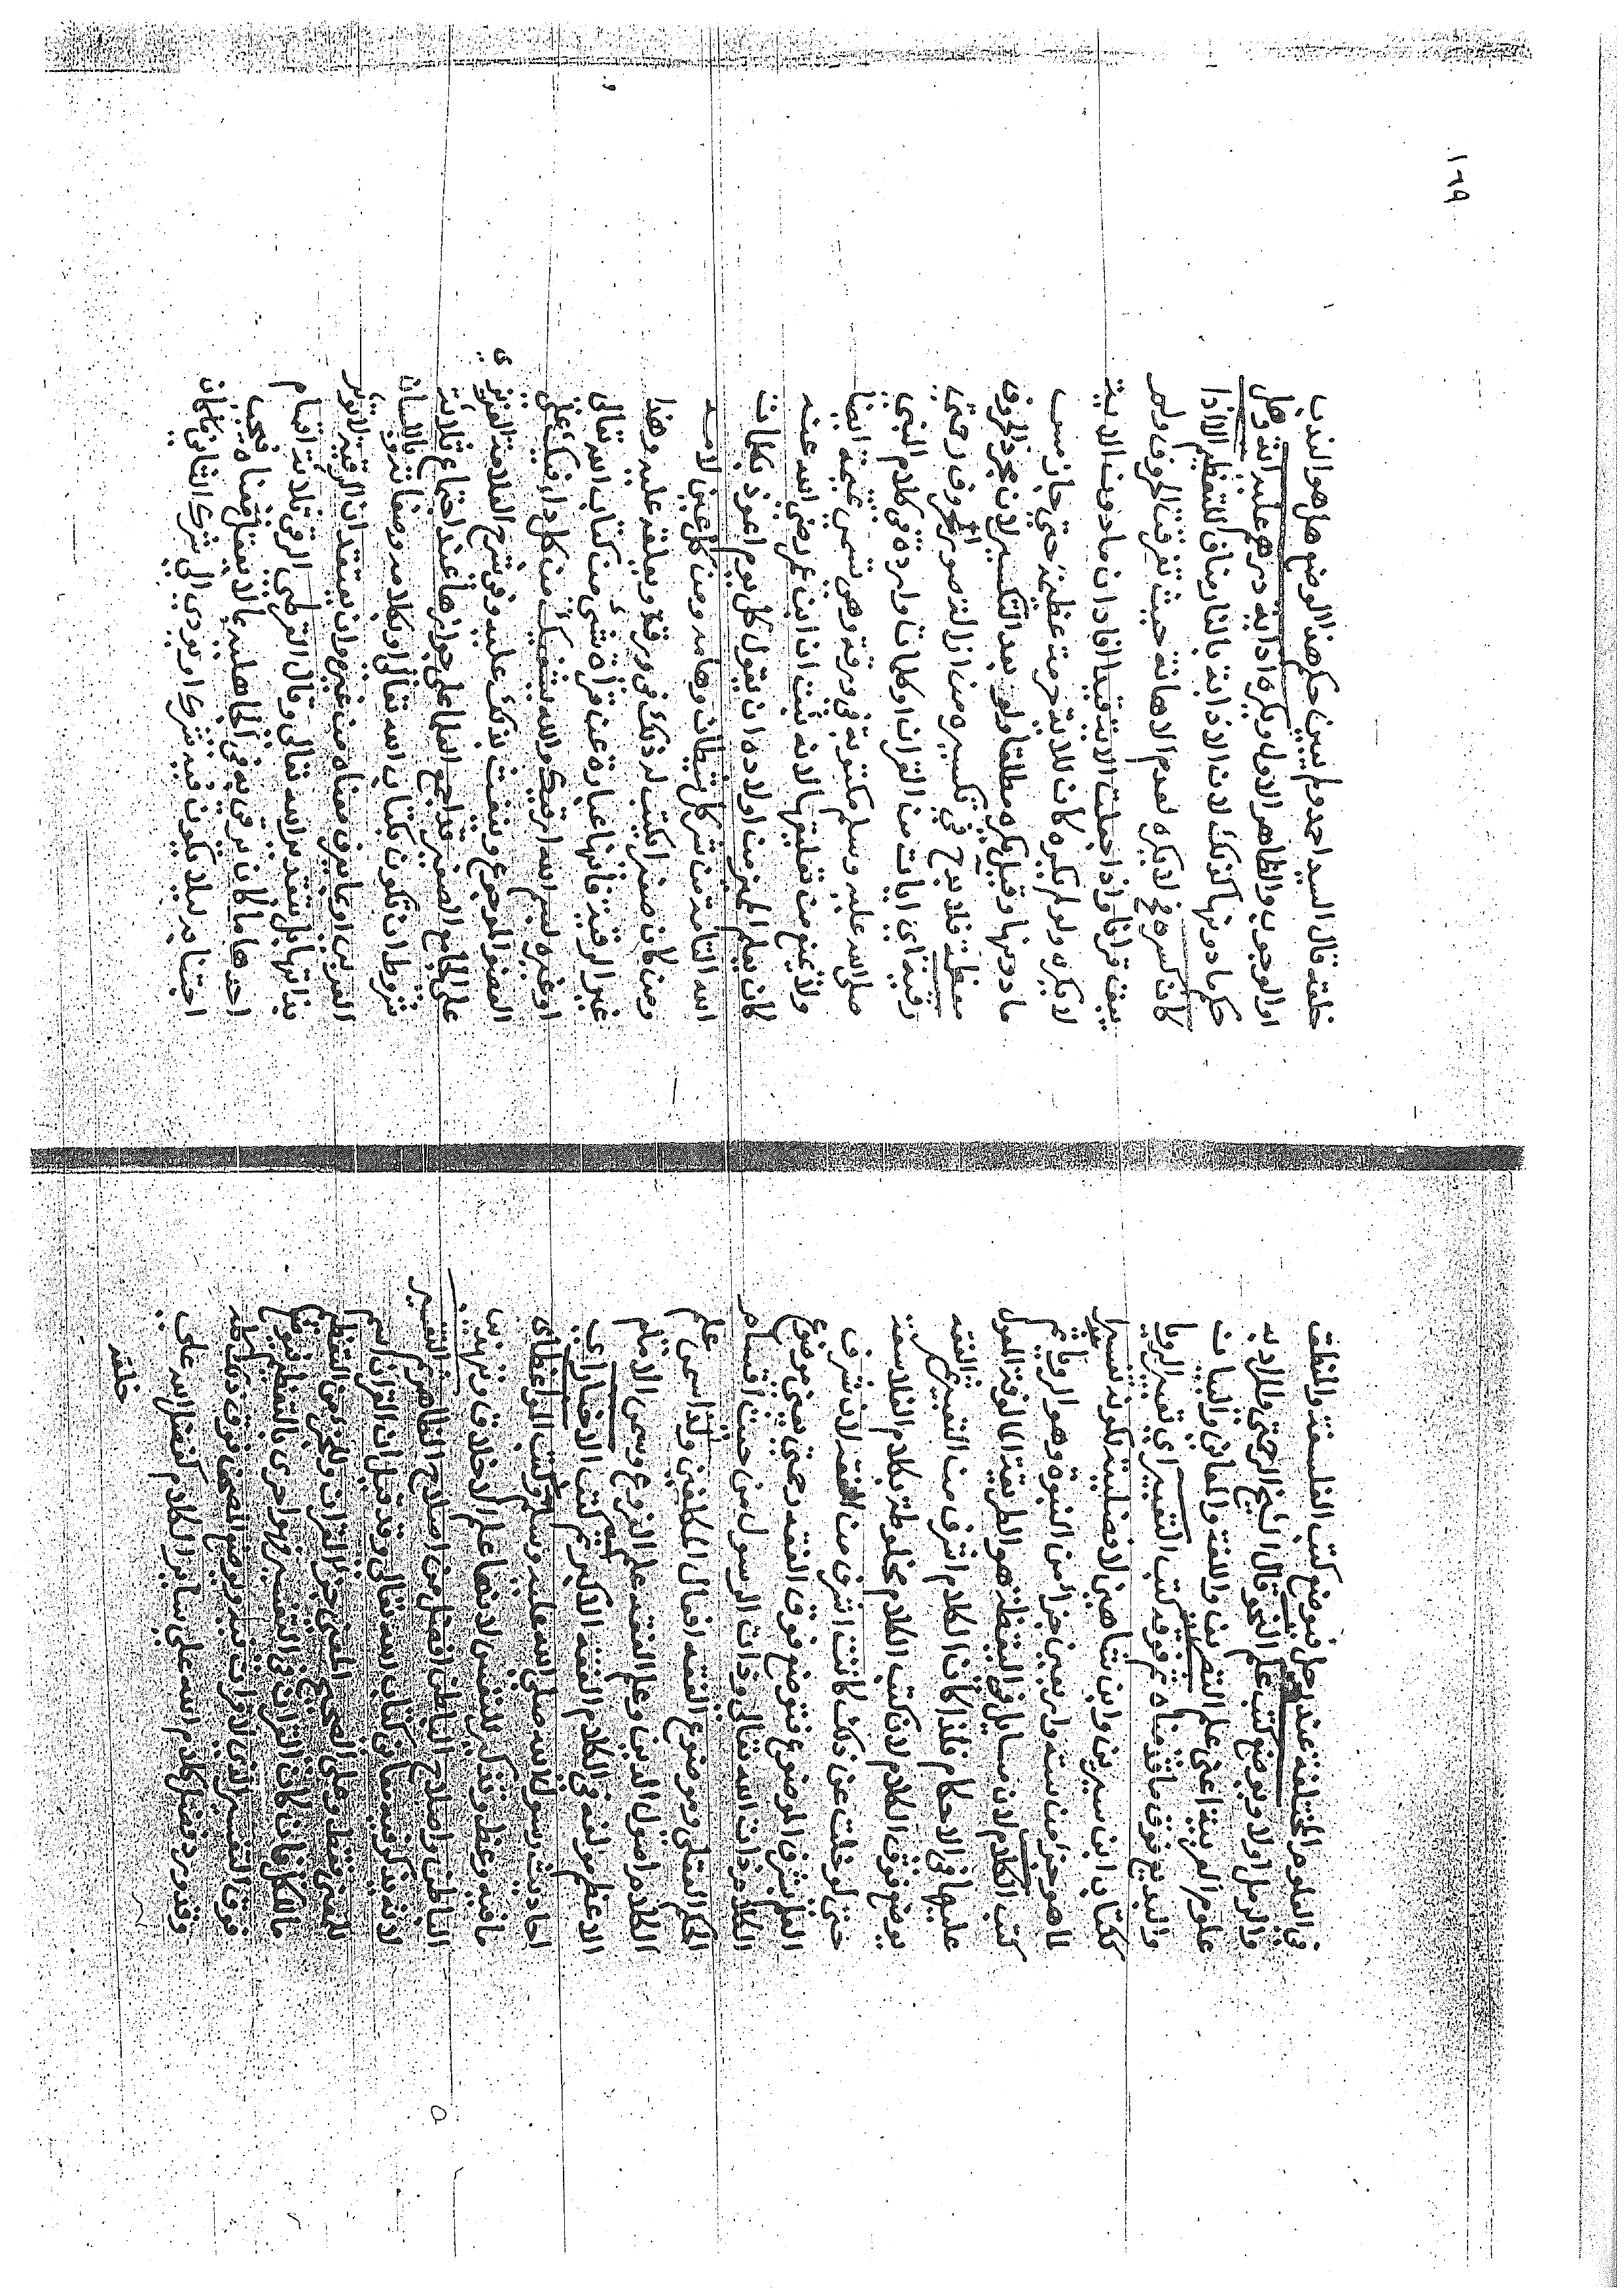 ١٦٩
في العلوم المختلفة عند رجل فيوضع كتب الفلسفة والمنطق
والرمل اولا ويوضع كتب علم النحو قال الشيخ الرحمتي والمراد به
علوم العربية اعني علم التصريف واللغة والمعاني والبيان
والبديع فوق ما قدمناه ثم فوقه كتب التعبير اي تعبير الرويا
ككتاب ابن سيرين وابن شاهين لافضليته لكونه تفسيرا
لما هو جزء من ستة واربعين جزأ من النبوة وهو الرويا ثم
كتب الكلام لان مسايل في اليقظة هو الطريقة المالوفة المعول
عليها في الاحكام فلذا كان الكلام اشرف من التعبير ثم الفقه
يوضع فوق الكلام لان كتب الكلام مخلوطة بكلام الفلاسفة
حتى لو خلت عن ذلك كانت اشرف من الفقه لان شرف
العلم بشرف الموضوع فتوضع فوق الفقه رحمتي يعني موضوع
الكلام ذات الله تعالى وذات الرسول من حيث اقسام
الحكم العقلي وموضوع الفقه افعال المكلفين ولذا سمي علم
الكلام اصول الدين وعلم الفقه علم الفروع وسمى الامام
الاعظم مولفه في الكلام الفقه الاكبر ثم كتب الاخبار اي
احاديث رسول الله صلى الله عليه وسلم وكتب المواعظ اي
ما فيه وعظ وتذكير للنفس لانها علم الاخلاق وتهذيب
الباطن واصلاح الباطن افضل من اصلاح الظاهر ثم التفسير
لانه يذكر فيه معاني كتاب الله تعالى وقد قيل ان القران اسم
للمعنى فقط وعلى الصحيح المعنى جزء القران وللجزء من التعظيم
ما للكل فان كان القران في التفسير فهو احرى بالتعظيم فيوضع
فوق التفسير الذي لا قران فيه ويوضع المصحف فوق ذلك كله
وقد ورد فضل كلام الله على ساير الكلام كفضل الله على
خلقه
خلقه قال السيد احمد ولم يبين حكم هذا الوضع هل هو الندب
او الوجوب والظاهر الاول ويكره اذابة درهم عليه اية وهل
حكم ما دونها كذلك لان الاذابة بالنار مناف للتعظيم الا اذا
كان كسره فح لا يكره لعدم الاهانة حيث تفرقت الحروف ولم
يبق قرانا واذا جعلت الاية قيدا افاد ان ما دون الاية
لا يكره ولو لم يكره كان للاية حرمة عظيمة حتى جاز مس
ما دونها وقيل يكره مطلقا ولو بعد التكسير لان مجرد الحروف
معظمة فلا يوح في تكسيره من ازالة صور الحروف رحمتي
رقية اي ايات من القران او كلمات واردة في كلام النبي
صلى الله عليه وسلم مكتوبة في ورقة وهي تسمى تميمة ايضا
ولا يمنع من تعليقها لانه ثبت ان ابن عمر رضي الله عنه
كان يعلم المميز من اولاده ان يقول كل يوم اعوذ بكلمات
الله التامة من شر كل شيطان وهامة ومن كل عين لامة
ومن كان صغيرا يكتب له ذلك في ورقة ويعلقه عليه وهذا
غير الرقية فانها عبارة عن قراة شيء من كتاب الله تعالى
او غيره بسم الله ارقيك والله يشفيك من كل داء فيك على
العضو الموجوع وينفث بذلك عليه وفي شرح العلامة العزيزي
على الجامع الصغير قد اجمع العلما على جوازها عند اجتماع ثلاثة
شروط ان تكون بكتاب الله تعالى او بكلامه وصفاته وباللسان
العربي او بما يعرف معناه من غيره وان يعتقد ان الرقية لا توثر
بذاتها بل بتقدير الله تعالى وقال القرطبي الرقى ثلاثة اقسام
احدها ما كان يرقى به في الجاهلية مما لا يعقل معناه فيجب
اجتنابه ليلا يكون فيه شرك او يودي الى شرك الثاني ما كان